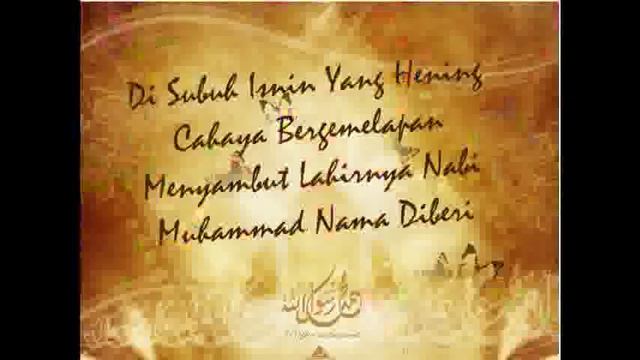 Di Subuh Isnin Yang Hening
Cahaya Bergemelapan
Menyambut Lahirnya Nabi
Muhammad Nama Diberi
محمد رسول الله